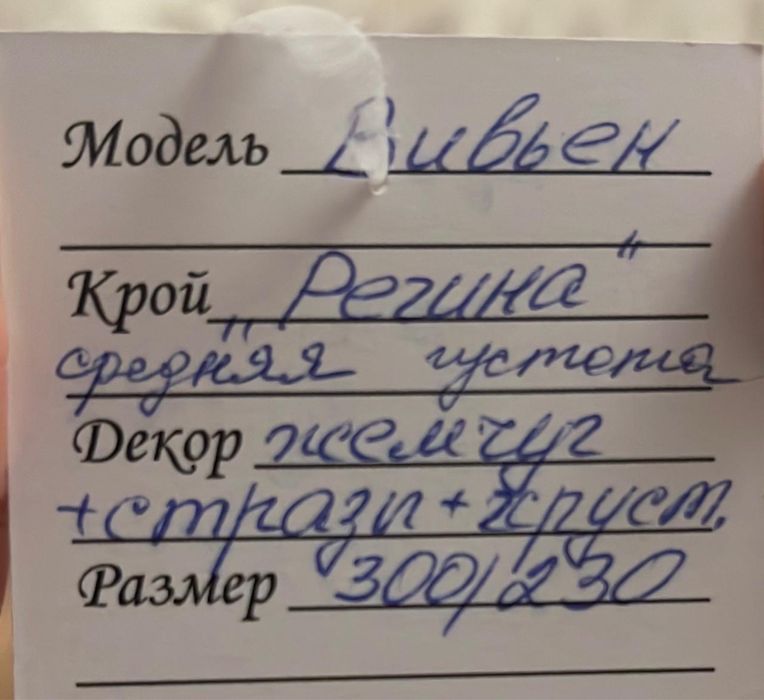 Модель Вивьен
Крой „Регина“
средняя густота
Декор жемчуг
+стразы + хруст.
Размер 300/230